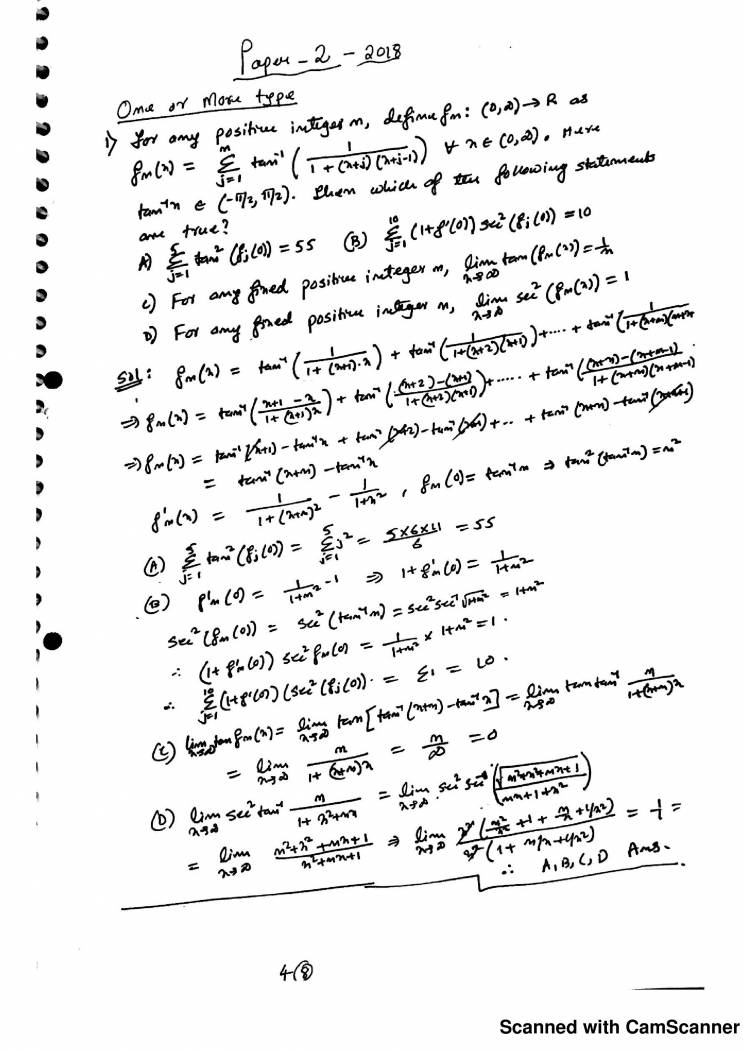 Paper - 2 - 2018
One or More type
1) For any positive integer n, define fn: (0,∞) → R as
fn(x) = Σ_{j=1}^{n} tan⁻¹ (1/(1+(x+j)(x+j-1))) ∀ x ∈ (0,∞). Here
tan⁻¹x ∈ (-π/2, π/2). Then which of the following statements
are true?
A) Σ_{j=1}^{5} tan²(fj(0)) = 55 (B) Σ_{j=1}^{10} (1+f'(0)) sec²(fj(0)) = 10
C) For any fixed positive integer n, lim_{x→∞} tan(fn(x)) = 1/n
D) For any fixed positive integer n, lim_{x→∞} sec²(fn(x)) = 1
Sol: fn(x) = tan⁻¹(1/(1+(x+1)·x)) + tan⁻¹(1/(1+(x+2)(x+1))) + .... + tan⁻¹(1/(1+(x+n)(x+n
⇒ fn(x) = tan⁻¹((x+1-x)/(1+(x+1)x)) + tan⁻¹(((x+2)-(x+1))/(1+(x+2)(x+1))) + ..... + tan⁻¹(((x+n)-(x+n-1))/(1+(x+n)(x+n-1)
⇒ fn(x) = tan⁻¹(x+1) - tan⁻¹x + tan⁻¹(x+2) - tan⁻¹(x+1) + .. + tan⁻¹(x+n) - tan⁻¹(x+n-1)
= tan⁻¹(x+n) - tan⁻¹x
f'n(x) = 1/(1+(x+n)²) - 1/(1+x²), fn(0) = tan⁻¹n ⇒ tan²(tan⁻¹n) = n²
(A) Σ_{j=1}^{5} tan²(fj(0)) = Σ_{j=1}^{5} j² = (5×6×11)/6 = 55
(B) f'n(0) = 1/(1+n²) - 1 ⇒ 1+f'n(0) = 1/(1+n²)
sec²(fn(0)) = sec²(tan⁻¹n) = sec² sec⁻¹√(1+n²) = 1+n²
∴ (1+f'n(0)) sec² fn(0) = 1/(1+n²) × 1+n² = 1.
∴ Σ_{j=1}^{10} (1+f'(0)) (sec²(fj(0)). = Σ1 = 10.
(C) lim_{x→∞} tan fn(x) = lim_{x→∞} tan[tan⁻¹(x+n) - tan⁻¹x] = lim_{x→∞} tan tan⁻¹ n/(1+(x+n)x
= lim_{x→∞} n/(1+(x+n)x) = n/∞ = 0
(D) lim_{x→∞} sec² tan⁻¹ n/(1+x²+nx) = lim_{x→∞} sec² sec⁻¹ (√(n²+x²+nx+1)/(nx+1+x²))
= lim_{x→∞} (n²+x²+nx+1)/(x²+nx+1) ⇒ lim_{x→∞} x²(n²/x²+1+n/x+1/x²)/x²(1+n/x+1/x²) = 1/1 =
∴ A, B, C, D Ans.
4(8)
Scanned with CamScanner